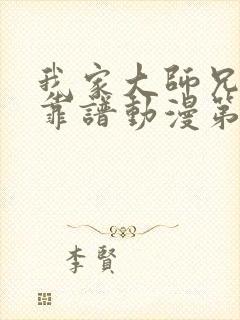 我家大師兄
靠譜動漫第
李賢